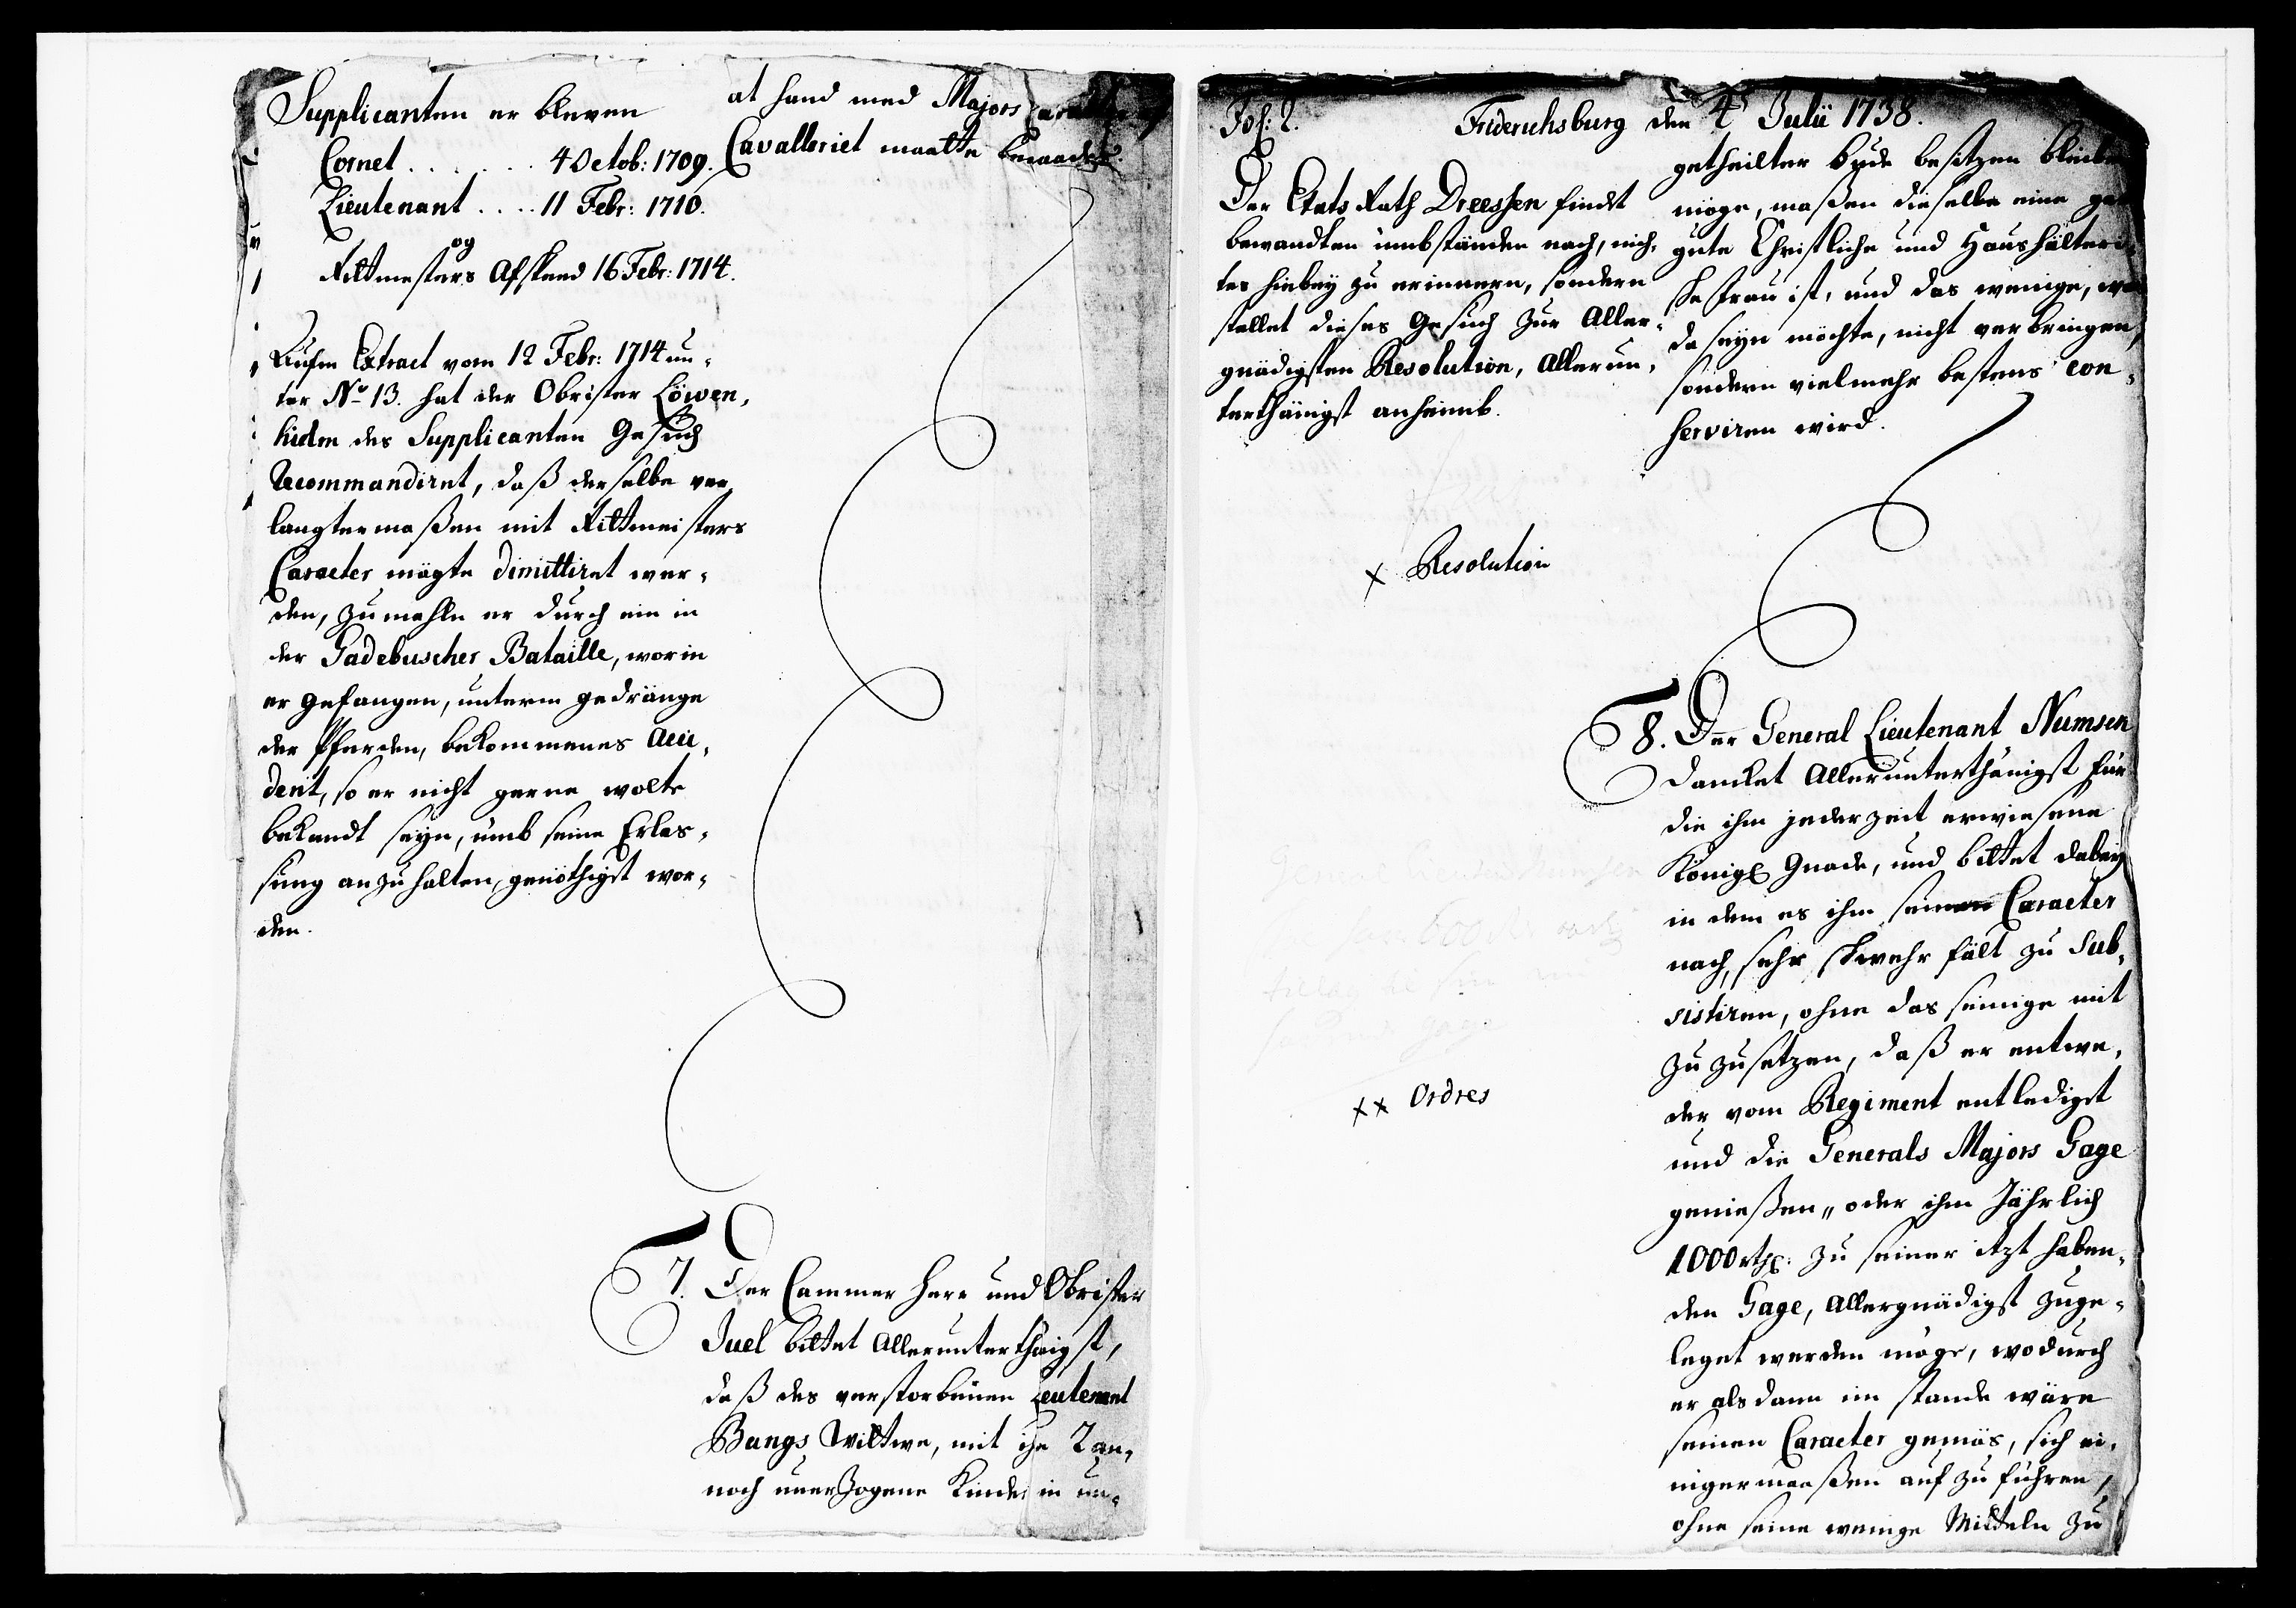 Supplicanten er bleven
Cornet . . . . . . . 4 Octob: 1709.
Lieutenant . . . . 11 Febr: 1710.
og
Rittmesters Afskeed 16 Febr: 1714.
Aufm Extract vom 12 Febr: 1714 un-
ter No 13. hat der Obrister Löwen,
hielm des Supplicanten Gesuch
Recommandiret, daß derselbe ver
langtermaßen mit Rittmeisters
Caracter mögte dimittiret wer-
den, zumahln er durch ein in
der Gadebuscher Bataille, worin
er gefangen, unterm gedränge
der Pferden, bekommenes Acci-
dent, so er nicht gerne wolte
bekandt seyn, umb seine Erlas-
sung anzuhalten, genöthigt wor-
den.
at hand med Majors Caracter af
Cavalleriet maatte benaades.
7. Der Cammer Herr und Obrister
Juel bittet allerunterthänigst,
daß des verstorbenen Leutenant
Bangs Wittwe, mit ihr 2 an-
noch unerzogene Kinder in un-
Fol: 2.
Friderichsburg den 4ten Julii 1738.
Der Etats Rath Dreessen findt
bewandten umbständen nach, nich-
tes hiebey zu erinnern, sondern
stellet dieses Gesuch zur Aller-
gnädigsten Resolution, Allerun-
terthänigst anheimb.
x Resolution
xx Ordres
getheilter Bude besitzen bleiben
möge, maßen dieselbe eine gar
gute Christliche und Haushälteri-
sche Frau ist, und das wenige, was
da seyn möchte, nicht verbringen,
sondern vielmehr bestens con-
serviren wird.
8. Der General Lieutenant Numsen
dancket Allerunterthänigst für
die ihm jederzeit erwiesene
Königl Gnade, und bittet dabey
in dem es ihm seinen Caracter
nach, sehr schwehr fält zu sub-
sistiren, ohne das seinige mit
zu zusetzen, daß er entwe-
der vom Regiment entledigt
und die Generals Majors Gage
genießen, oder ihm Jährlich
1000 rthl: zu seiner itzt haben-
den Gage, Allergnädigst zuge-
leget werden möge, wodurch
er alsdann im stande wäre
seinen Caracter gemäs, sich ei-
nigermaaßen auf zu führen,
ohne seine wenige Mitteln zu